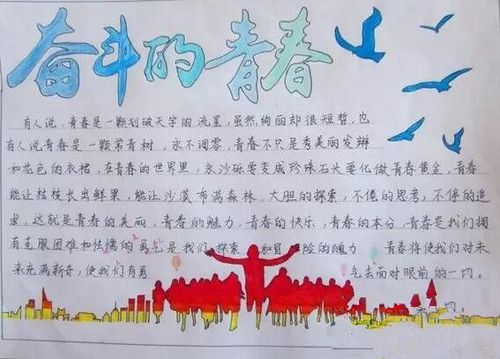 奋斗的青春
有人说，青春是一颗划破天宇的流星，虽然绚丽却很短暂，也
有人说青春是一颗常青树，永不调零，青春不只是秀美的发辫
和花色的衣裙，在青春的世界里，永沙砾要变成珍珠石头要化做青春黄金，青春
能让枯枝长出鲜果，能让沙漠布满森林，大胆的探索，不倦的思考，不停的追
求，这就是青春的美丽，青春的魅力，青春的快乐，青春的本分，青春是我们拥
有克服困难和怯懦的勇气是我们探索和冒险的魄力 青春将使我们对未
来充满新奇，使我们有勇气去面对眼前的一切。